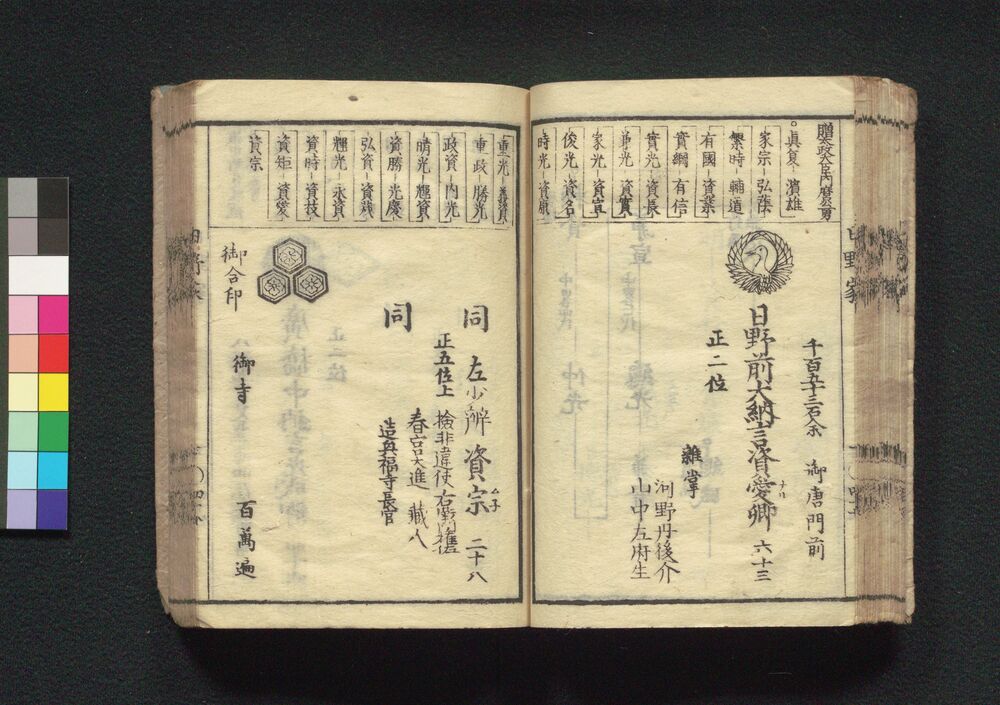 贈太政大臣房前曽孫
真夏 濱雄
家宗 弘蔭
繁時 輔道
有國 資業
實綱 有信
實光 資長
兼光 資實
家光 資宣
俊光 資名
時光 資康
千百五十三石余 御唐門前
日野前大納言資愛卿 六十三
ナル
正二位
雜掌
河野丹後介
山中左府生
日野家
重光 義資
重政 勝光
政資 内光
晴光 輝資
資勝 光慶
弘資 資茂
輝光 永資
資時 資枝
資矩 資愛
資宗
同 左少辨 資宗 二十八
ムネ
正五位上 検非違使右衛門権佐
同 春宮大進 藏人
造興福寺長官
御合印
御寺 百萬遍
日野家